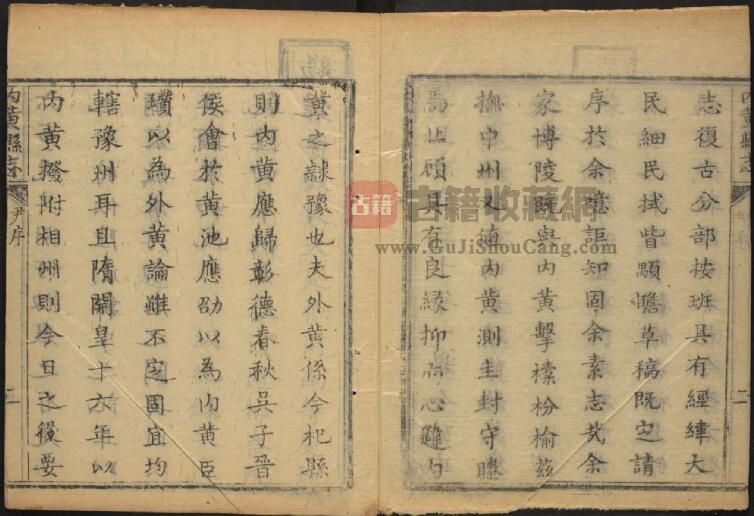 志復古分部按班具有經緯大
民細民拭眥顒瞻草稿既定請
序於余噫詎知固余素志哉余
家博陵既與内黄擊榛枌榆茲
撫中州又補内黄測圭封守睠
焉北顧具有良緣抑
黄之隷豫也夫外黄係今杞縣
則内黄應歸彰德春秋吳子晉
侯會於黄池應劭以為内黄臣
瓚以為外黄論雖不定固宜均
轄豫州耳且隋開皇十六年以
内黄撥附相州則今日之後要
内黄縣志
尹序
二
古籍
古籍收藏網
www.GuJiShouCang.com